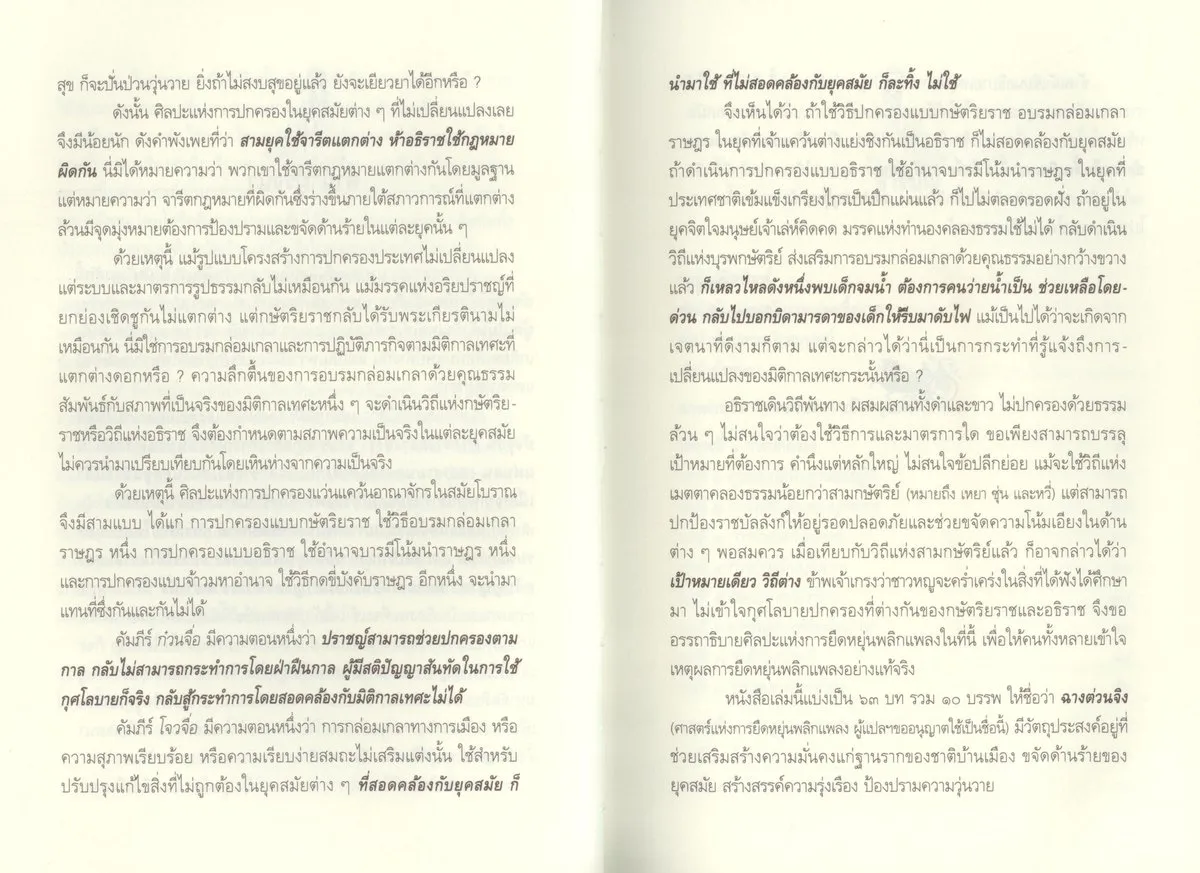 สุข ก็จะปั่นป่วนวุ่นวาย ยิ่งถ้าไม่สงบสุขอยู่แล้ว ยังจะเยียวยาได้อีกหรือ ?
ดังนั้น ศิลปะแห่งการปกครองในยุคสมัยต่าง ๆ ที่ไม่เปลี่ยนแปลงเลย
จึงมีน้อยนัก ดังคำพังเพยที่ว่า สามยุคใช้จารีตแตกต่าง ห้าอธิราชใช้กฎหมาย
ผิดกัน นี่มิได้หมายความว่า พวกเขาใช้จารีตกฎหมายแตกต่างกันโดยมูลฐาน
แต่หมายความว่า จารีตกฎหมายที่ผิดกันซึ่งร่างขึ้นภายใต้สภาวการณ์ที่แตกต่าง
ล้วนมีจุดมุ่งหมายต้องการป้องปรามและขจัดด้านร้ายในแต่ละยุคนั้น ๆ
ด้วยเหตุนี้ แม้รูปแบบโครงสร้างการปกครองประเทศไม่เปลี่ยนแปลง
แต่ระบบและมาตรการรูปธรรมกลับไม่เหมือนกัน แม้มรรคแห่งอริยปราชญ์ที่
ยกย่องเชิดชูกันไม่แตกต่าง แต่กษัตริยราชกลับได้รับพระเกียรตินามไม่
เหมือนกัน นี่มิใช่การอบรมกล่อมเกลาและการปฏิบัติภารกิจตามมิติกาลเทศะที่
แตกต่างดอกหรือ ? ความลึกตื้นของการอบรมกล่อมเกลาด้วยคุณธรรม
สัมพันธ์กับสภาพที่เป็นจริงของมิติกาลเทศะหนึ่ง ๆ จะดำเนินวิถีแห่งกษัตริย-
ราชหรือวิถีแห่งอธิราช จึงต้องกำหนดตามสภาพความเป็นจริงในแต่ละยุคสมัย
ไม่ควรนำมาเปรียบเทียบกันโดยเหินห่างจากความเป็นจริง
ด้วยเหตุนี้ ศิลปะแห่งการปกครองแว่นแคว้นอาณาจักรในสมัยโบราณ
จึงมีสามแบบ ได้แก่ การปกครองแบบกษัตริยราช ใช้วิธีอบรมกล่อมเกลา
ราษฎร หนึ่ง การปกครองแบบอธิราช ใช้อำนาจบารมีโน้มนำราษฎร หนึ่ง
และการปกครองแบบจ้าวมหาอำนาจ ใช้วิธีกดขี่บังคับราษฎร อีกหนึ่ง จะนำมา
แทนที่ซึ่งกันและกันไม่ได้
คัมภีร์ ก๋วนจื่อ มีความตอนหนึ่งว่า ปราชญ์สามารถช่วยปกครองตาม
กาล กลับไม่สามารถกระทำการโดยฝ่าฝืนกาล ผู้มีสติปัญญาสันทัดในการใช้
กุศโลบายก็จริง กลับสู้กระทำการโดยสอดคล้องกับมิติกาลเทศะไม่ได้
คัมภีร์ โจวจื่อ มีความตอนหนึ่งว่า การกล่อมเกลาทางการเมือง หรือ
ความสุภาพเรียบร้อย หรือความเรียบง่ายสมถะไม่เสริมแต่งนั้น ใช้สำหรับ
ปรับปรุงแก้ไขสิ่งที่ไม่ถูกต้องในยุคสมัยต่าง ๆ ที่สอดคล้องกับยุคสมัย ก็
นำมาใช้ ที่ไม่สอดคล้องกับยุคสมัย ก็ละทิ้ง ไม่ใช้
จึงเห็นได้ว่า ถ้าใช้วิธีปกครองแบบกษัตริยราช อบรมกล่อมเกลา
ราษฎร ในยุคที่เจ้าแคว้นต่างแย่งชิงกันเป็นอธิราช ก็ไม่สอดคล้องกับยุคสมัย
ถ้าดำเนินการปกครองแบบอธิราช ใช้อำนาจบารมีโน้มนำราษฎร ในยุคที่
ประเทศชาติเข้มแข็งเกรียงไกรเป็นปึกแผ่นแล้ว ก็ไปไม่ตลอดรอดฝั่ง ถ้าอยู่ใน
ยุคจิตใจมนุษย์เจ้าเล่ห์คิดคด มรรคแห่งทำนองคลองธรรมใช้ไม่ได้ กลับดำเนิน
วิถีแห่งบุรพกษัตริย์ ส่งเสริมการอบรมกล่อมเกลาด้วยคุณธรรมอย่างกว้างขวาง
แล้ว ก็เหลวไหลดังหนึ่งพบเด็กจมน้ำ ต้องการคนว่ายน้ำเป็น ช่วยเหลือโดย-
ด่วน กลับไปบอกบิดามารดาของเด็กให้รีบมาดับไฟ แม้เป็นไปได้ว่าจะเกิดจาก
เจตนาที่ดีงามก็ตาม แต่จะกล่าวได้ว่านี่เป็นการกระทำที่รู้แจ้งถึงการ-
เปลี่ยนแปลงของมิติกาลเทศะกระนั้นหรือ ?
อธิราชเดินวิถีพันทาง ผสมผสานทั้งดำและขาว ไม่ปกครองด้วยธรรม
ล้วน ๆ ไม่สนใจว่าต้องใช้วิธีการและมาตรการใด ขอเพียงสามารถบรรลุ
เป้าหมายที่ต้องการ คำนึงแต่หลักใหญ่ ไม่สนใจข้อปลีกย่อย แม้จะใช้วิถีแห่ง
เมตตาคลองธรรมน้อยกว่าสามกษัตริย์ (หมายถึง เหยา ซุ่น และหวี่) แต่สามารถ
ปกป้องราชบัลลังก์ให้อยู่รอดปลอดภัยและช่วยขจัดความโน้มเอียงในด้าน
ต่าง ๆ พอสมควร เมื่อเทียบกับวิถีแห่งสามกษัตริย์แล้ว ก็อาจกล่าวได้ว่า
เป้าหมายเดียว วิถีต่าง ข้าพเจ้าเกรงว่าชาวหญูจะคร่ำเคร่งในสิ่งที่ได้ฟังได้ศึกษา
มา ไม่เข้าใจกุศโลบายปกครองที่ต่างกันของกษัตริยราชและอธิราช จึงขอ
อรรถาธิบายศิลปะแห่งการยืดหยุ่นพลิกแพลงในที่นี้ เพื่อให้คนทั้งหลายเข้าใจ
เหตุผลการยืดหยุ่นพลิกแพลงอย่างแท้จริง
หนังสือเล่มนี้แบ่งเป็น ๖๓ บท รวม ๑๐ บรรพ ให้ชื่อว่า ฉางต่วนจิง
(ศาสตร์แห่งการยืดหยุ่นพลิกแพลง ผู้แปลฯขออนุญาตใช้เป็นชื่อนี้) มีวัตถุประสงค์อยู่ที่
ช่วยเสริมสร้างความมั่นคงแก่ฐานรากของชาติบ้านเมือง ขจัดด้านร้ายของ
ยุคสมัย สร้างสรรค์ความรุ่งเรือง ป้องปรามความวุ่นวาย